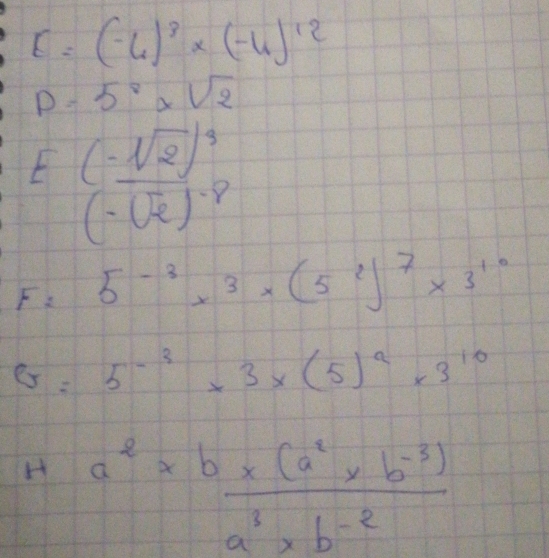 C = (-4)³ × (-4)¹²
D = 5² × √2
E (-√2)³
(-√2)⁻⁸
F = 5⁻³ × 3 × (5²)⁷ × 3¹⁰
G = 5⁻³ × 3 × (5)² × 3¹⁰
H a² × b × (a² × b⁻³)
a³ × b⁻²